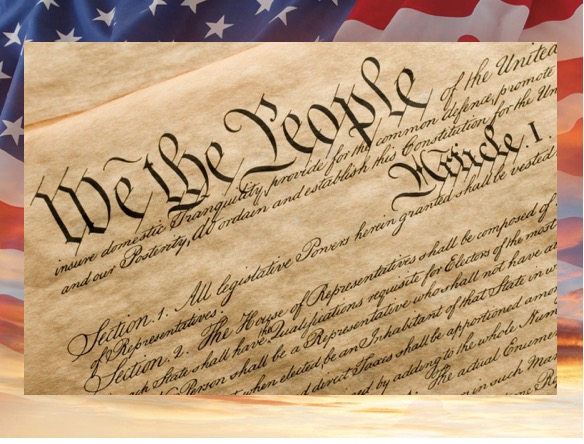 We the People of the United
insure domestic Tranquility, provide for the common defence, promote
and our Posterity, do ordain and establish this Constitution for the Un
Article. I.
Section. 1. All legislative Powers herein granted shall be vested
of Representatives.
Section. 2. The House of Representatives shall be composed of
State shall have Qualifications requisite for Electors of the most
Person shall be a Representative who shall not have at
when elected, be an Inhabitant of that State in w
and direct Taxes shall be apportioned amon
by adding to the whole Num
The actual Enumer